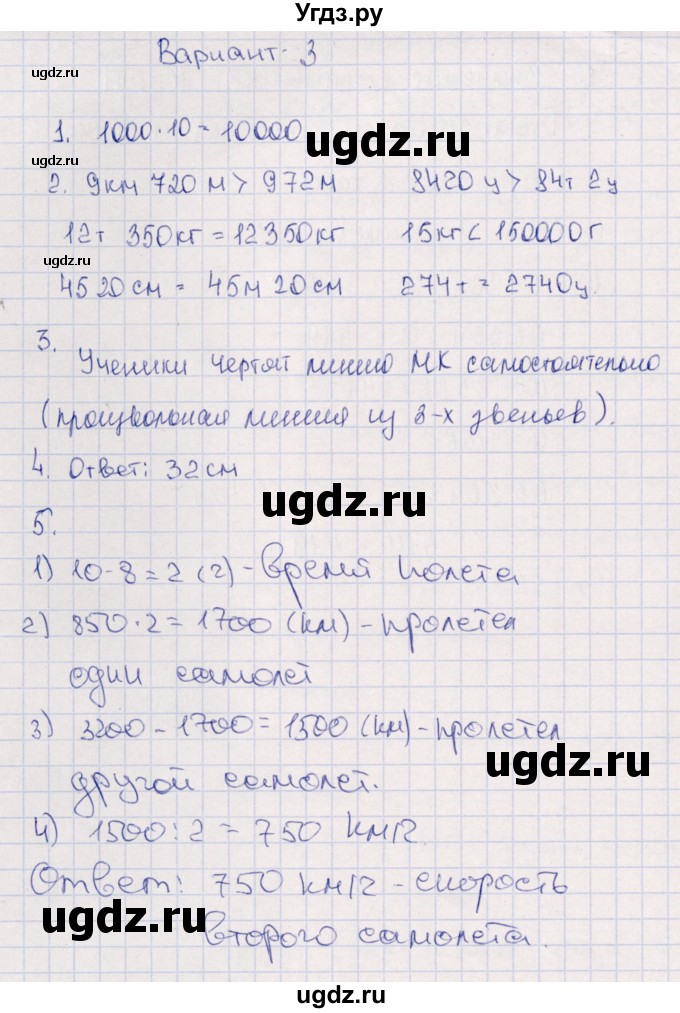 Угдз.ру
Вариант-3
ugdz.ru
1. 1000·10=10000
ugdz.ru
ugdz.ru
2. 9км 720м > 972м 8420ц > 84т 2ц
12т 350кг = 12350кг 15кг < 150000г
ugdz.ru
4520см = 45м 20см 274т = 2740ц.
3.
Ученики чертят линию МК самостоятельно
(произвольная линия из 3-х звеньев).
4. Ответ: 32см
ugdz.ru
5.
1) 10-8=2 (г) - время полета
2) 850·2=1700 (км) - пролетел
один самолет
ugdz.ru
3) 3200-1700=1500 (км) - пролетел
ugdz.ru
другой самолет.
4) 1500:2=750 км/г.
Ответ: 750 км/г - скорость
ugdz.ru
второго самолета.
ugdz.ru